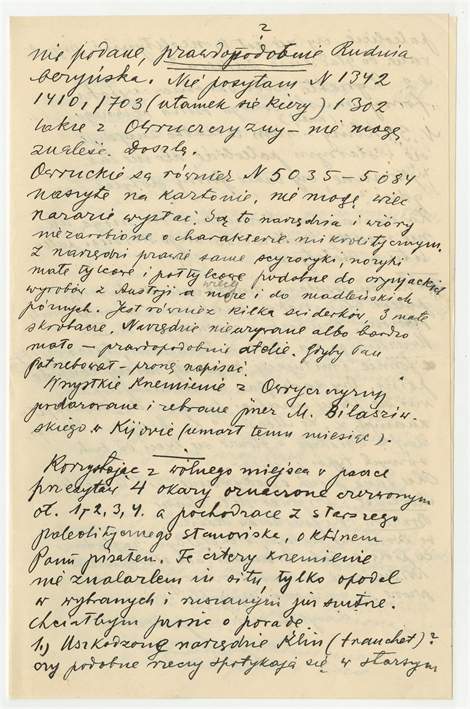 2
nie podane, prawdopodobnie Rudnia
beryńska. Nie posyłam N 1342
1410, 1703 (ułamek siekiery) 1302
także z Owruczczyzny – nie mogę
znaleść. Doszlę.
Owruckie są również N 5035 – 5084
naszyte na kartonie, nie mogę więc
narazie wysłać. Są to narzędzia i wióry
niezarobione o charakterze mikrolitycznym.
Z narzędzi prawie same scyzoryki nożyki
małe tylcowe i półtylcowe podobne do oryniackich
wyrobów z Austrji a może więcej i do madleńskich
późnych. Jest również kilka
skrobacze. Narzędzie albo bardzo
mało – prawdopodobnie atelie. Gdyby Pan
potrzebował – proszę napisać.
Wszystkie krzemienie z Owruczczyzny
podarowane i zebrane przez M. Biłaszew-
skiego w Kijowie (umarł temu miesiąc).
Korzystając z wolnego miejsca w paace
przesyłam 4 okazy oznaczone czerwonym
oł. 1, 2, 3, 4. a pochodzące z starszego
paleolitycznego stanowiska, o którem
Panu pisałem. Te cztery krzemienie
nie znalazłem in situ, tylko opodal
w wybranych i ruszanym już
chciałbym prosić o poradę.
1.) Uszkodzone narzędzie klin (tranchet)?
czy podobne rzeczy spotykają się w starszym